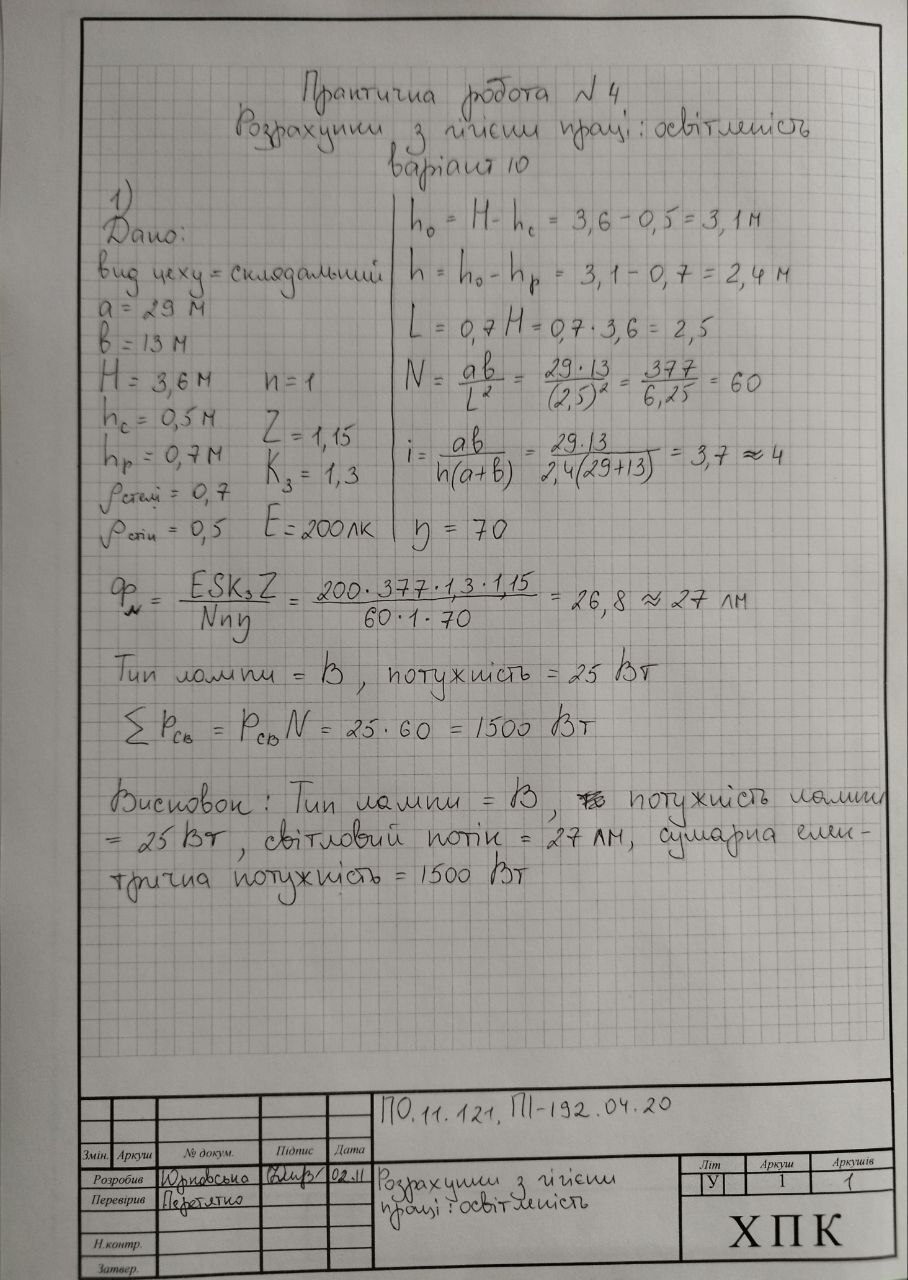 Практична робота N 4
Розрахунки з гігієни праці: освітленість
варіант 10
1)
Дано:
вид цеху = складальний
a = 29 м
в = 13 м
H = 3,6 м n = 1
hc = 0,5 м Z = 1,15
hр = 0,7 м Kз = 1,3
ρстелі = 0,7
ρстін = 0,5 E = 200 лк
h₀ = H - hc = 3,6 - 0,5 = 3,1 м
h = h₀ - hр = 3,1 - 0,7 = 2,4 м
L = 0,7 H = 0,7 · 3,6 = 2,5
N = aв/L² = 29·13/(2,5)² = 377/6,25 = 60
i = aв/h(a+в) = 29·13/2,4(29+13) = 3,7 ≈ 4
η = 70
Фл = ESKзZ/Nnη = 200·377·1,3·1,15/60·1·70 = 26,8 ≈ 27 лм
Тип лампи = В, потужність = 25 Вт
∑ Рсв = Рсв N = 25 · 60 = 1500 Вт
Висновок: Тип лампи = В, потужність лампи
= 25 Вт, світловий потік = 27 лм, сумарна елек-
трична потужність = 1500 Вт
ПО.11.121, ПІ-192.04.20
Змін. Аркуш № докум. Підпис Дата
Розробив Юрковська 02.11
Перевірив Перетятко
Н.контр.
Затвер.
Розрахунки з гігієни
праці: освітленість
Літ Аркуш Аркушів
У 1 1
ХПК